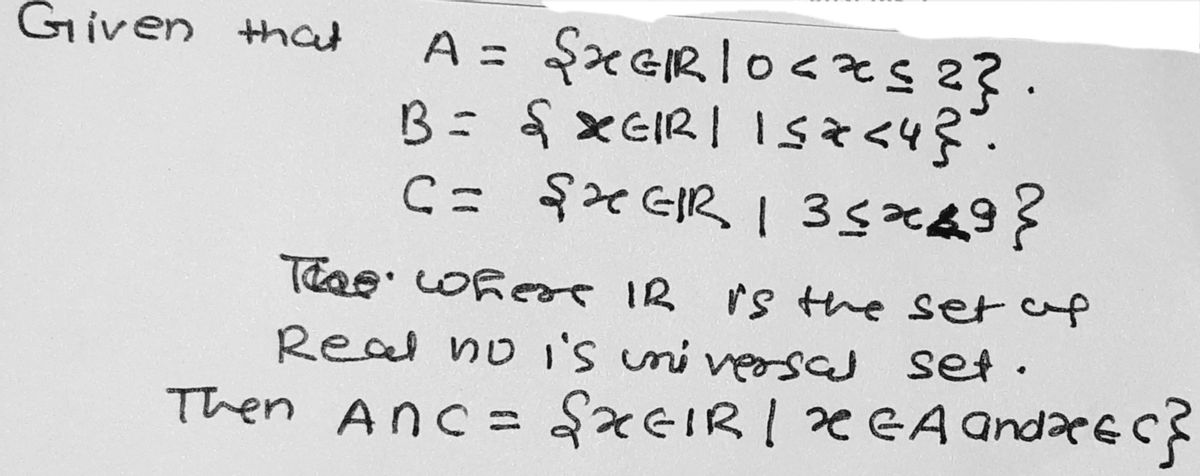 Given that A = {x∈IR | 0 < x ≤ 2}.
B = {x∈IR | 1 ≤ x < 4}.
C = {x∈IR | 3 ≤ x < 9}
where IR is the set of
Real no is universal set.
Then A∩C = {x∈IR | x∈A and x∈C}